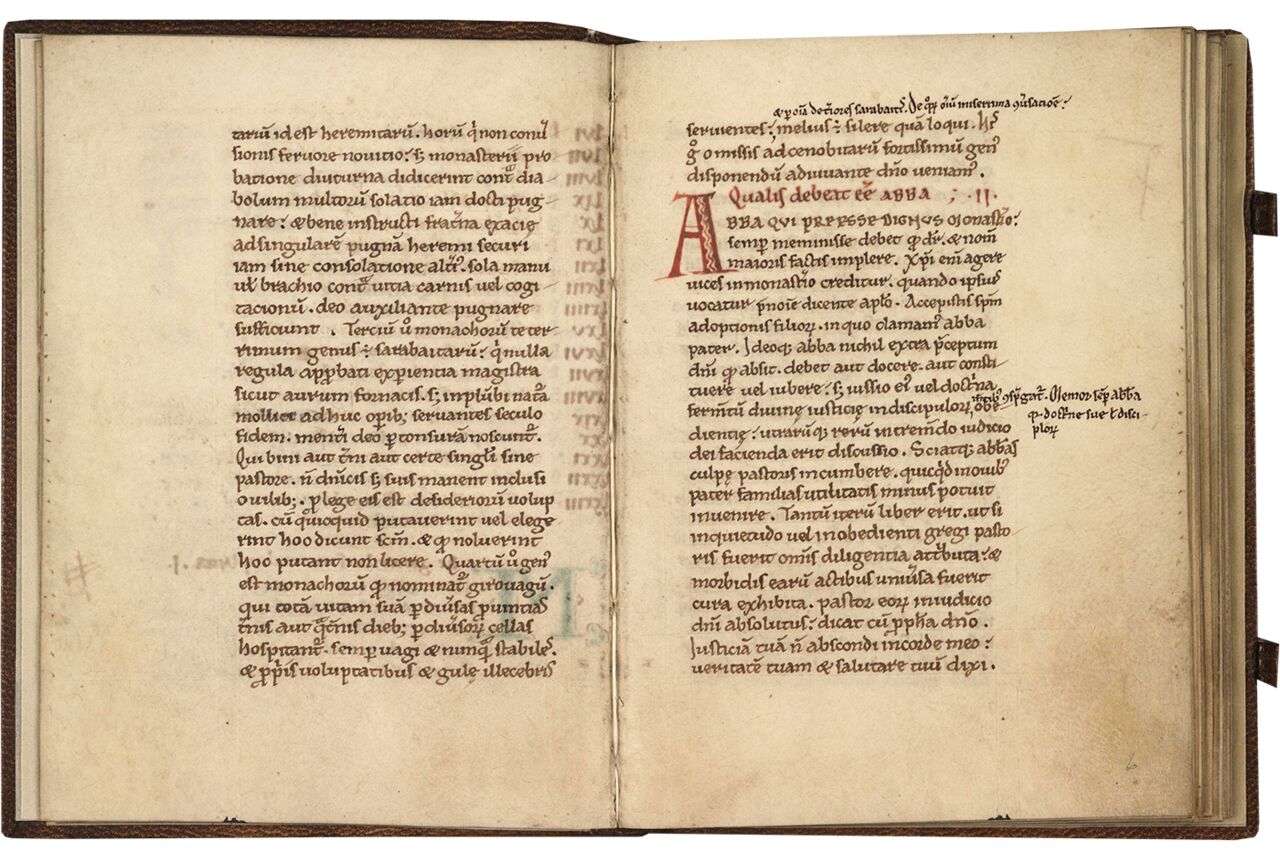 tariũ id est heremitarũ. horũ q̇ non conũ
sionis feruore nouitio: sꝫ monasterii pro
batione diuturna didicerint cont̃ dia
bolum multorũ solatio iam docti pug
nare: & bene instructi frat̃na ex acie
ad singularẽ pugnã heremi securi
iam sine consolatione alt̃i᷒. sola manu
uł brachio cont̃ uitia carnis uel cogi
tacionũ. deo auxiliante pugnare
sufficiunt. Terciũ ů monachorũ teter
rimum genus ÷ sarabaitarũ: q̇ nulla
regula app̃bati experientia magistra
sicut aurum fornacis. sꝫ in plũbi nat̃a
molliti adhuc opibꝫ seruantes seculo
fidem. mentiri deo ꝑ tonsurã noscunt᷑.
Qui bini aut t̃ni aut certe singłi sine
pastore. ñ dñicis sꝫ suis manent inclusi
ouilibꝫ. ꝑ lege eis est desideriorũ uolup
tas. cũ quicquid putauerint uel elege
rint hoc dicunt scm̃. & qđ noluerint
hoc putant non licere. Quartũ ů gen᷒
est monachorũ qđ nominat᷑ girouagũ.
qui totã uitam suã ꝑ diũsas puintias
t̃nis aut q̃t̃nis diebꝫ ꝑ diũsoꝝ cellas
hospitant᷑. semper uagi & nunq̃ stabiles.
& ꝓp̃iis uoluptatibus & gule illecebris
& ꝑ oĩa det̃iores sarabaitis. De qoꝝ oĩu miserrima ꝯũsacione:
seruientes: melius ÷ silere quã loqui. His
g̊ omissis ad cenobitarũ fortissimũ gen᷒
disponendũ adiuuante dño ueniam᷒.
Qualis debeat eẽ ABBA ; .II.
ABBA QVI PREESSE DIGNVS Monast̃io:
semꝑ meminisse debet qđ dr̃. & nom̃
maioris factis implere. Xp̃i eni̅ agere
uices in monast̃io creditur. quando ipsius
uocatur p̃noĩe dicente ap̃lo. Accepistis sp̃m
adoptionis filioꝝ. in quo clamam᷒ abba
pater. Ideoqꝫ abba nichil extra p̃ceptum
dñi qđ absit. debet aut docere. aut consti
tuere uel iubere: sꝫ iussio ei᷒ uel doct̃na
fermtũ diuine iusticie in discipuloꝝ
mentibꝫ ꝯsp̃gat᷑. Memor sẽp abba
qđ doct̃ne sue ł disci-
puloꝝ
obe
dientie: utrarũqꝫ rerũ in tremdo iudicio
dei facienda erit discussio. Sciatqꝫ abbas
culpe pastoris incumbere. quicq̇d in ouib᷒
pater familias utilitatis minus potuit
inuenire. Tantũ iterũ liber erit. ut si
inquietudo uel inobedienti gregi pasto
ris fuerit om̃is diligentia att̃buta: &
morbidis earũ actibus uniũsa fuerit
cura exhibita. pastor eoꝝ in iudicio
dñi absolutus: dicat cũ ꝓpħa dño.
Iusticiã tuã ñ abscondi in corde meo:
ueritatẽ tuam & salutare tuũ dixi.
6